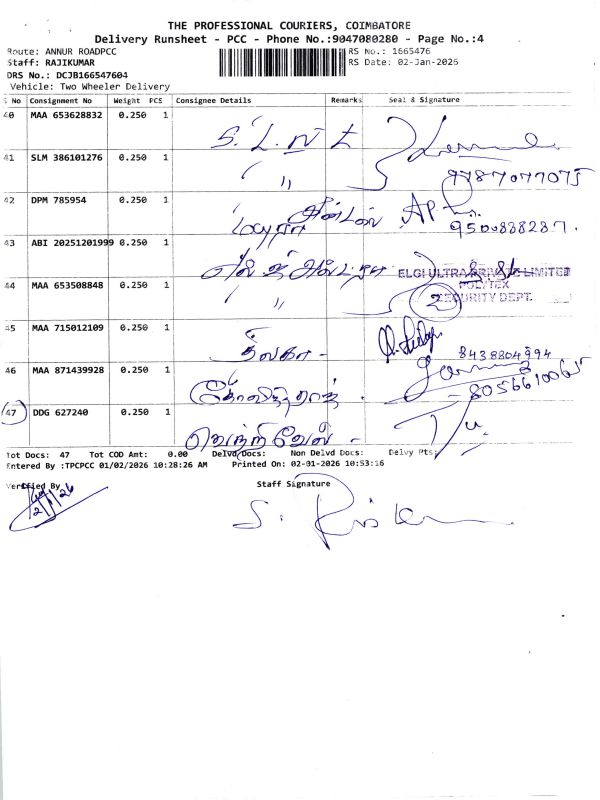 THE PROFESSIONAL COURIERS, COIMBATORE
Delivery Runsheet - PCC - Phone No.:9047080280 - Page No.:4
Route: ANNUR ROADPCC RS No.: 1665476
Staff: RAJIKUMAR RS Date: 02-Jan-2026
DRS No.: DCJB166547604
Vehicle: Two Wheeler Delivery
S No Consignment No Weight PCS Consignee Details Remarks Seal & Signature
40 MAA 653628832 0.250 1 S. L. N L
41 SLM 386101276 0.250 1 "
42 DPM 785954 0.250 1 9500888287.
43 ABI 20251201999 0.250 1
ELGI ULTRA PRIVATE LIMITED
POLYTEX
SECURITY DEPT.
44 MAA 653508848 0.250 1 " 2
45 MAA 715012109 0.250 1 திலகா -
8438804994
46 MAA 871439928 0.250 1 கோவிந்தராஜ்
47 DDG 627240 0.250 1 வெற்றிவேல் -
Tot Docs: 47 Tot COD Amt: 0.00 Delvd Docs: Non Delvd Docs: Delvy Pts:
Entered By :TPCPCC 01/02/2026 10:28:26 AM Printed On: 02-01-2026 10:53:16
Verified By Staff Signature
2/1/26